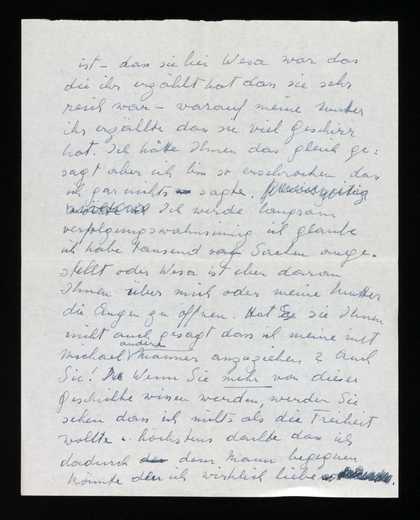 ist – dass sie bei Wesa war das
die ihr erzählt hat dass sie sehr
reich war – worauf meine Mutter
ihr erzählte dass sie viel Geschirr
hat. Ich hätte Ihnen das gleich ge-
sagt aber ich bin so erschrocken dass
ich gar nichts sagte.
Ich werde langsam
verfolgungswahnsinnig ich glaube
ich habe tausend Sachen ange-
stellt oder Wesa ist eben daran
Ihnen über mich oder meine Mutter
die Augen zu öffnen. Hat sie Ihnen
nicht auch gesagt dass ich meine mit
Michael andere Männer anzuziehen? Auch
Sie! Wenn Sie mehr von dieser
Geschichte wissen werden, werden Sie
sehen dass ich nichts als die Freiheit
wollte – höchstens dachte dass ich
dadurch dem Mann begegnen
könnte den ich wirklich liebe